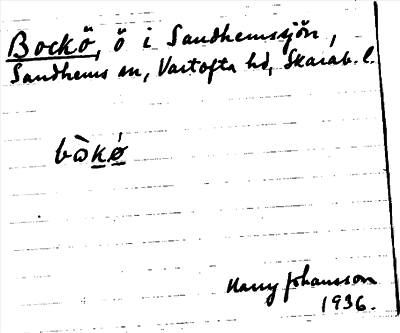 Bockö, ö i Sandhemssjön,
Sandhems sn, Vartofta hd, Skarab. l.
bɷ̀kǿ
Harry Johansson
1936.